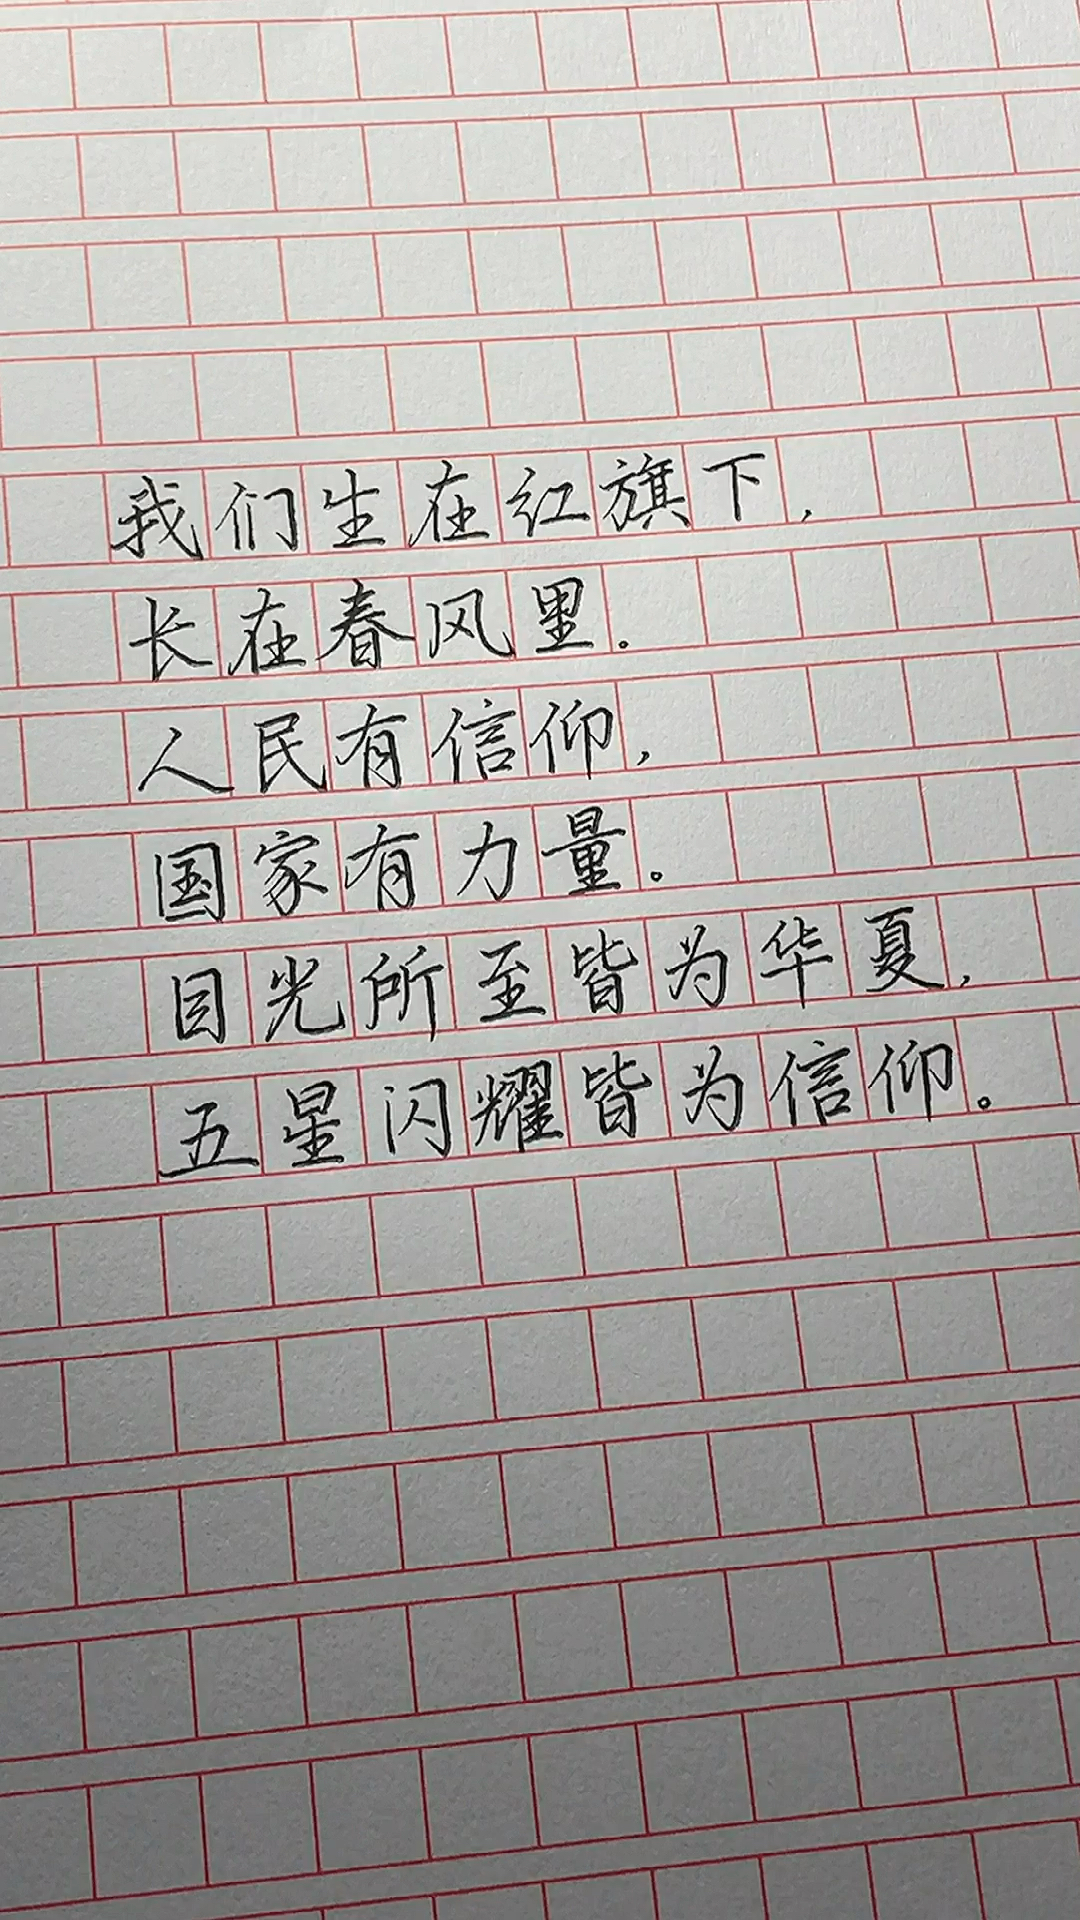 我们生在红旗下，
长在春风里。
人民有信仰，
国家有力量。
目光所至皆为华夏，
五星闪耀皆为信仰。